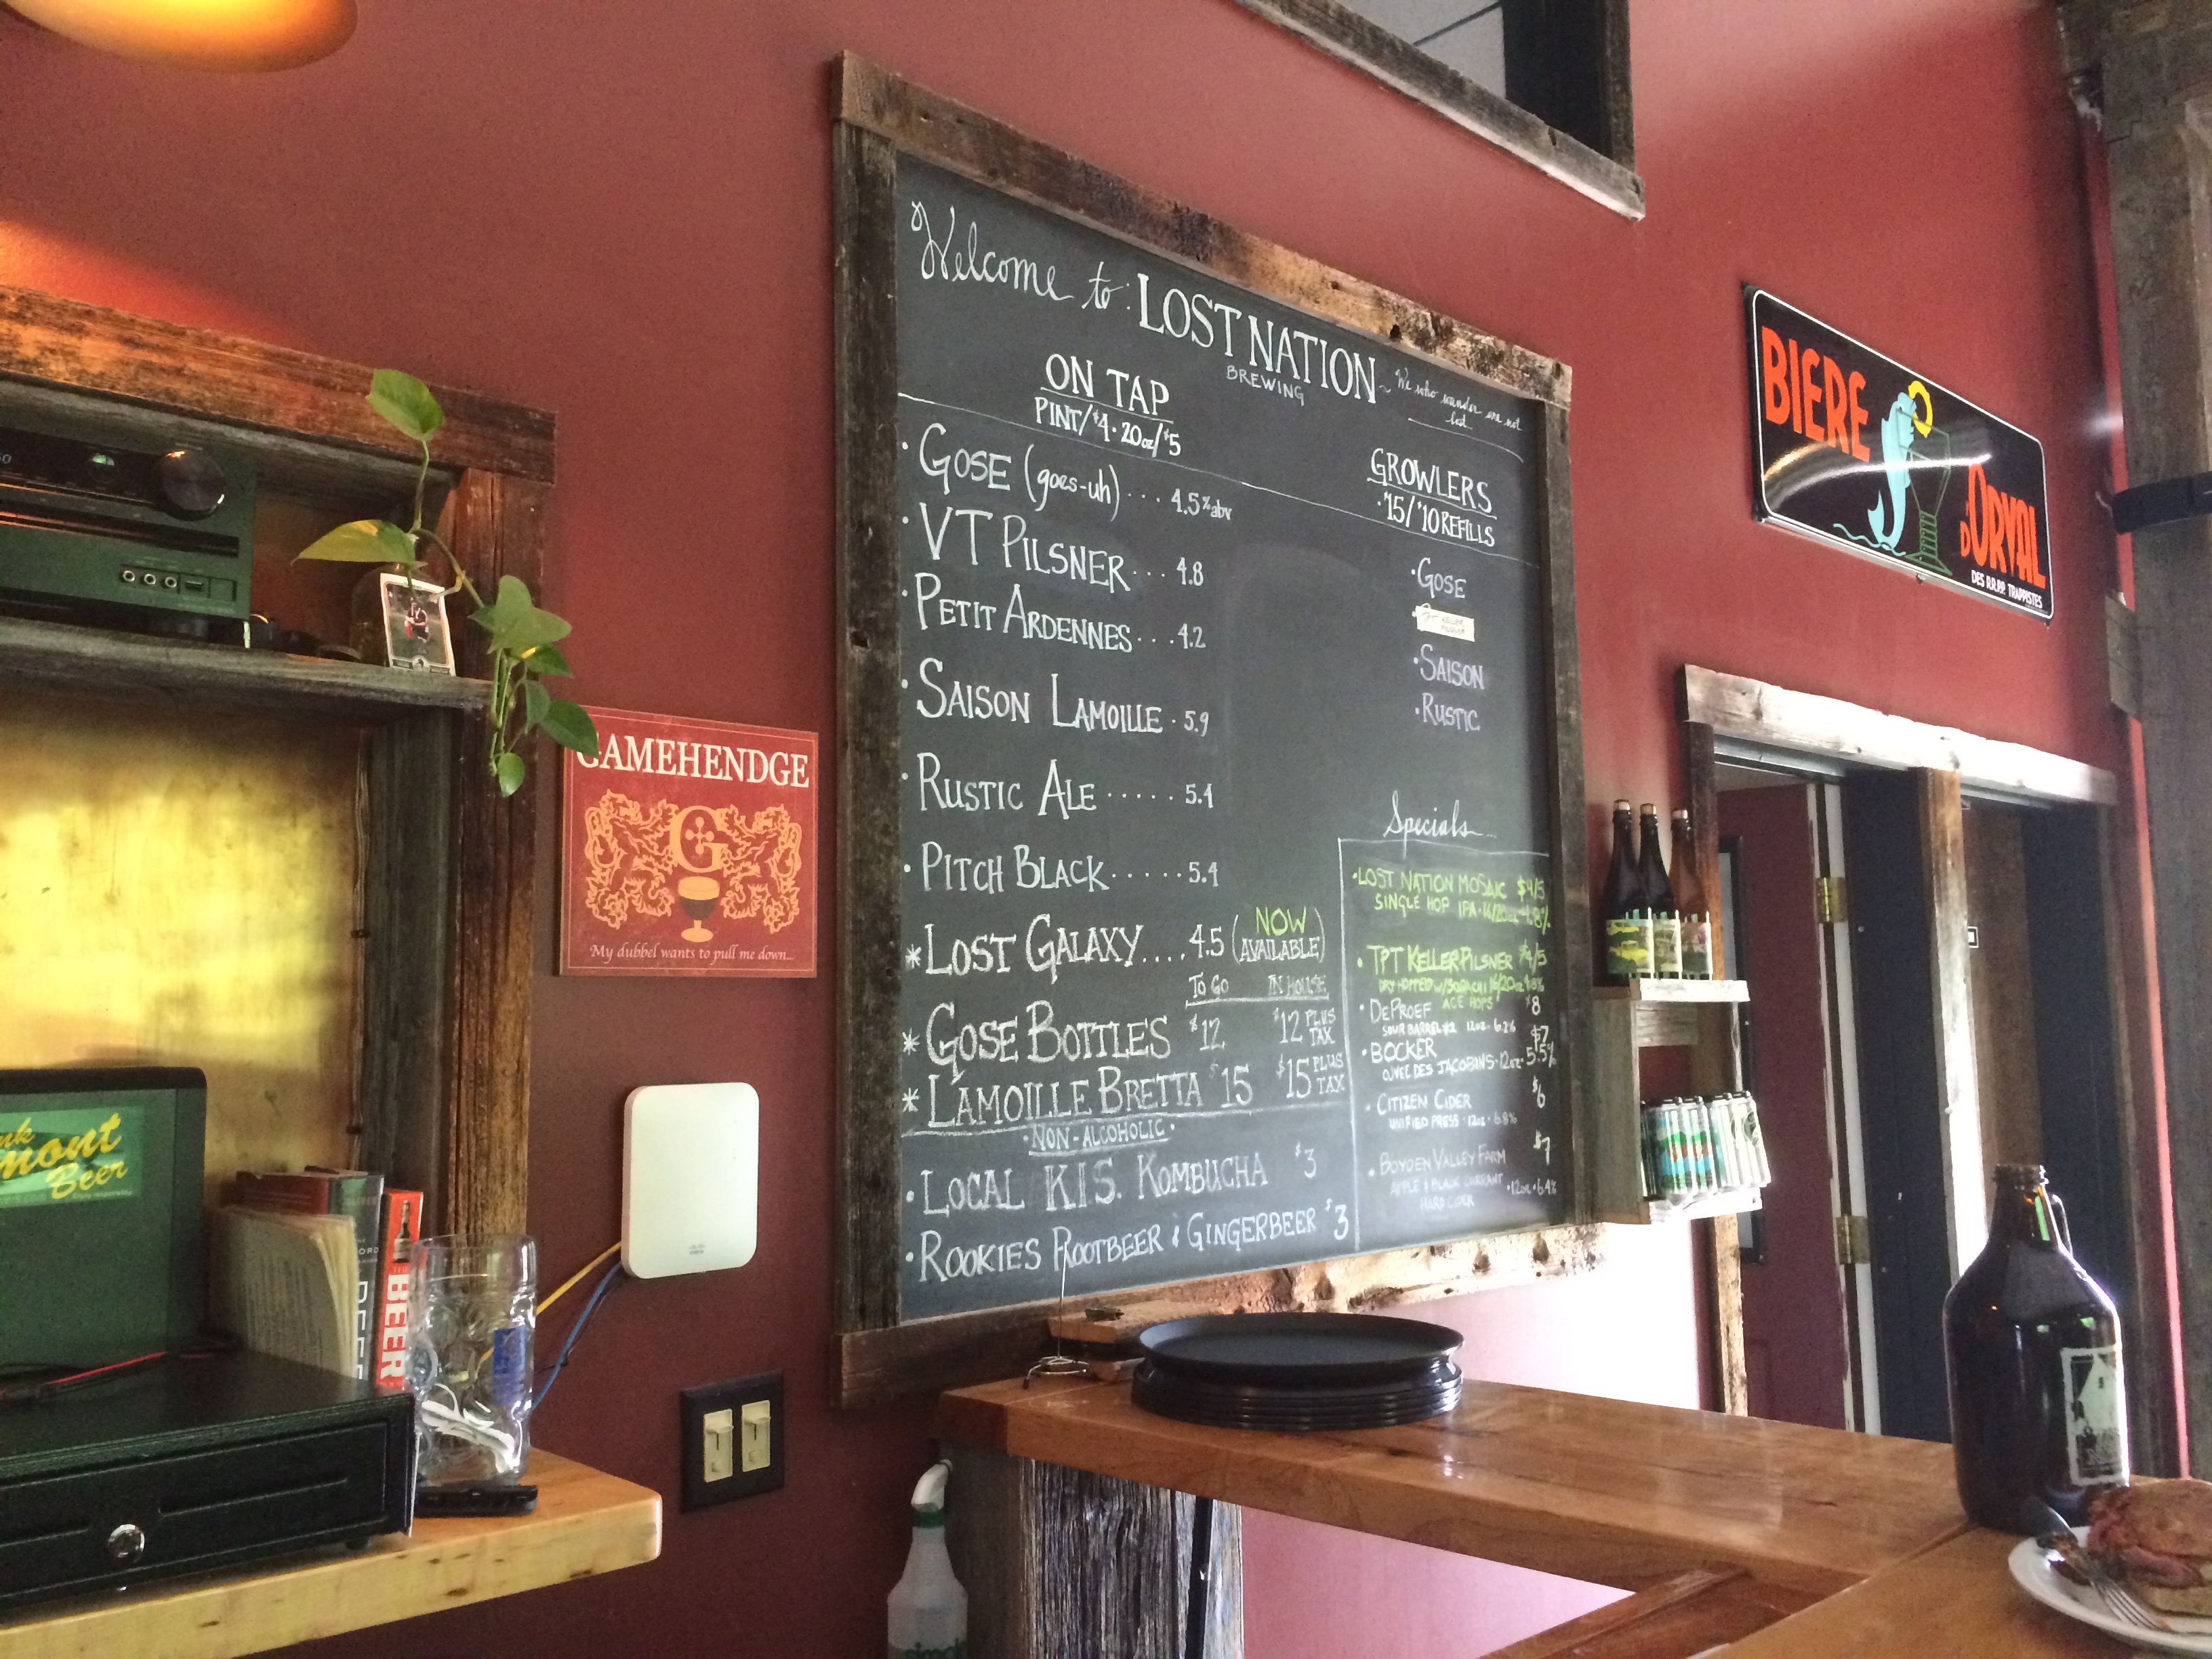 Welcome to: LOST NATION
BREWING
~ We who wander are not
lost
ON TAP
PINT/$4 · 20oz/$5
· GOSE (goes-uh) ... 4.5% abv
· VT PILSNER ... 4.8
· PETIT ARDENNES ... 4.2
· SAISON LAMOILLE · 5.9
· RUSTIC ALE ..... 5.4
· PITCH BLACK ..... 5.4
* LOST GALAXY .... 4.5 (NOW
AVAILABLE)
TO GO IN HOUSE
* GOSE BOTTLES $12 $12 PLUS
TAX
* LAMOILLE BRETTA $15 $15 PLUS
TAX
· NON-ALCOHOLIC ·
· LOCAL K.I.S. KOMBUCHA $3
· ROOKIES ROOTBEER & GINGERBEER $3
GROWLERS
· $15/$10 REFILLS
· GOSE
KELLER
PILSNER
· SAISON
· RUSTIC
Specials...
· LOST NATION MOSAIC $4/5
SINGLE HOP IPA · 16/20oz
· TPT KELLER PILSNER $4/5
DRY HOPPED w/ SORACHI 16/20oz
ACE HOPS
· DEPROEF $8
SOUR BARREL #2 12oz · 6.2%
· BOCKER $7
CUVEE DES JACOBINS · 12oz · 5.5%
· CITIZEN CIDER $6
UNIFIED PRESS · 12oz · 6.8%
· BOYDEN VALLEY FARM $7
APPLE & BLACK CURRANT · 12oz · 6.4%
HARD CIDER
GAMEHENDGE
G
My dubbel wants to pull me down...
BIERE
D'ORVAL
DES R.R.P.P. TRAPPISTES
mont
Beer
BEER